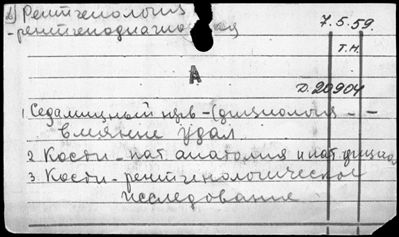 Рентгенология
7.5.59.
-рентгенодиагностика
Т.Н.
А
D.20904
1 Седалищный нерв - (физиология - -
влияние удал.
2 Кости - пат. анатомия и пат. физиол
3 Кости - рентгенологическое
исследование